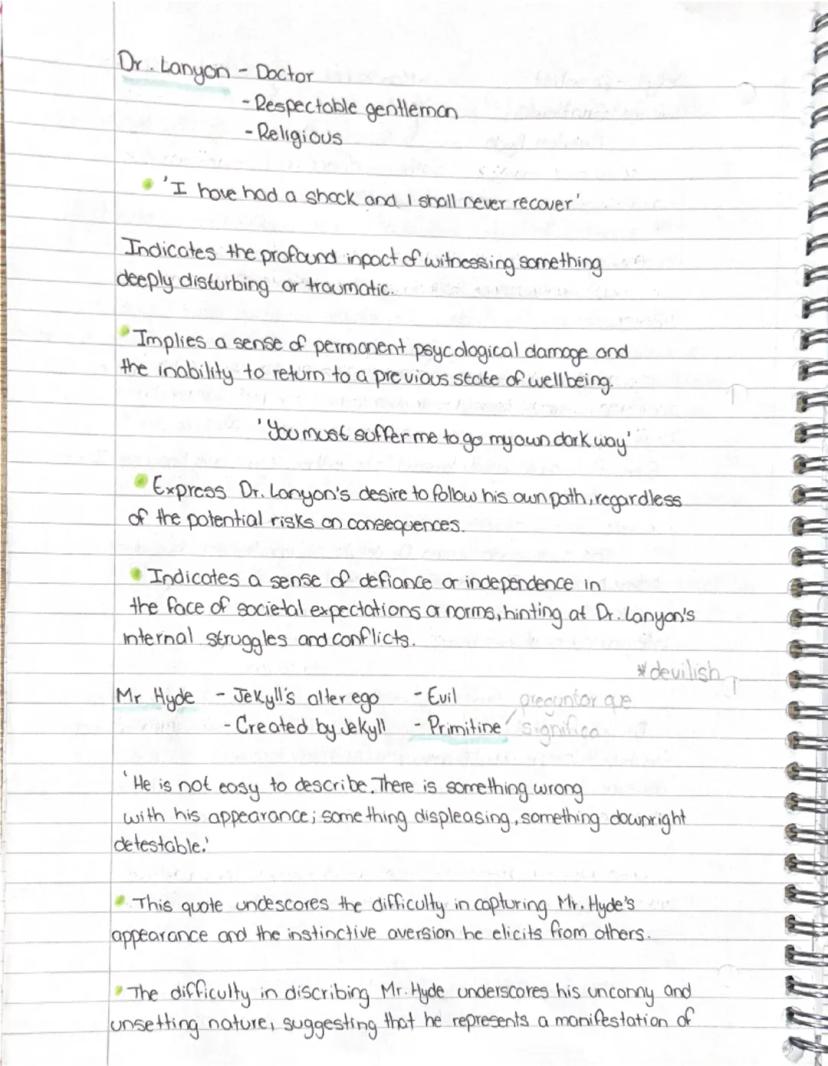 Dr. Lanyon - Doctor
- Respectable gentleman
- Religious
• 'I have had a shock and I shall never recover'
Indicates the profound inpact of witnessing something
deeply disturbing or traumatic.
• Implies a sense of permanent psycological damage and
the inability to return to a previous state of wellbeing.
'You must suffer me to go my own dark way'
• Express Dr. Lanyon's desire to follow his own path, regardless
of the potential risks on consequences.
• Indicates a sense of defiance or independence in
the face of societal expectations or norms, hinting at Dr. Lanyon's
internal struggles and conflicts.
*devilish
Mr Hyde - Jekyll's alter ego - Evil preguntar que
- Created by Jekyll - Primitine significa
'He is not easy to describe. There is something wrong
with his appearance; something displeasing, something downright
detestable.'
• This quote undescores the difficulty in capturing Mr. Hyde's
appearance and the instinctive aversion he elicits from others.
• The difficulty in discribing Mr. Hyde underscores his uncanny and
unsetting nature, suggesting that he represents a manifestation of